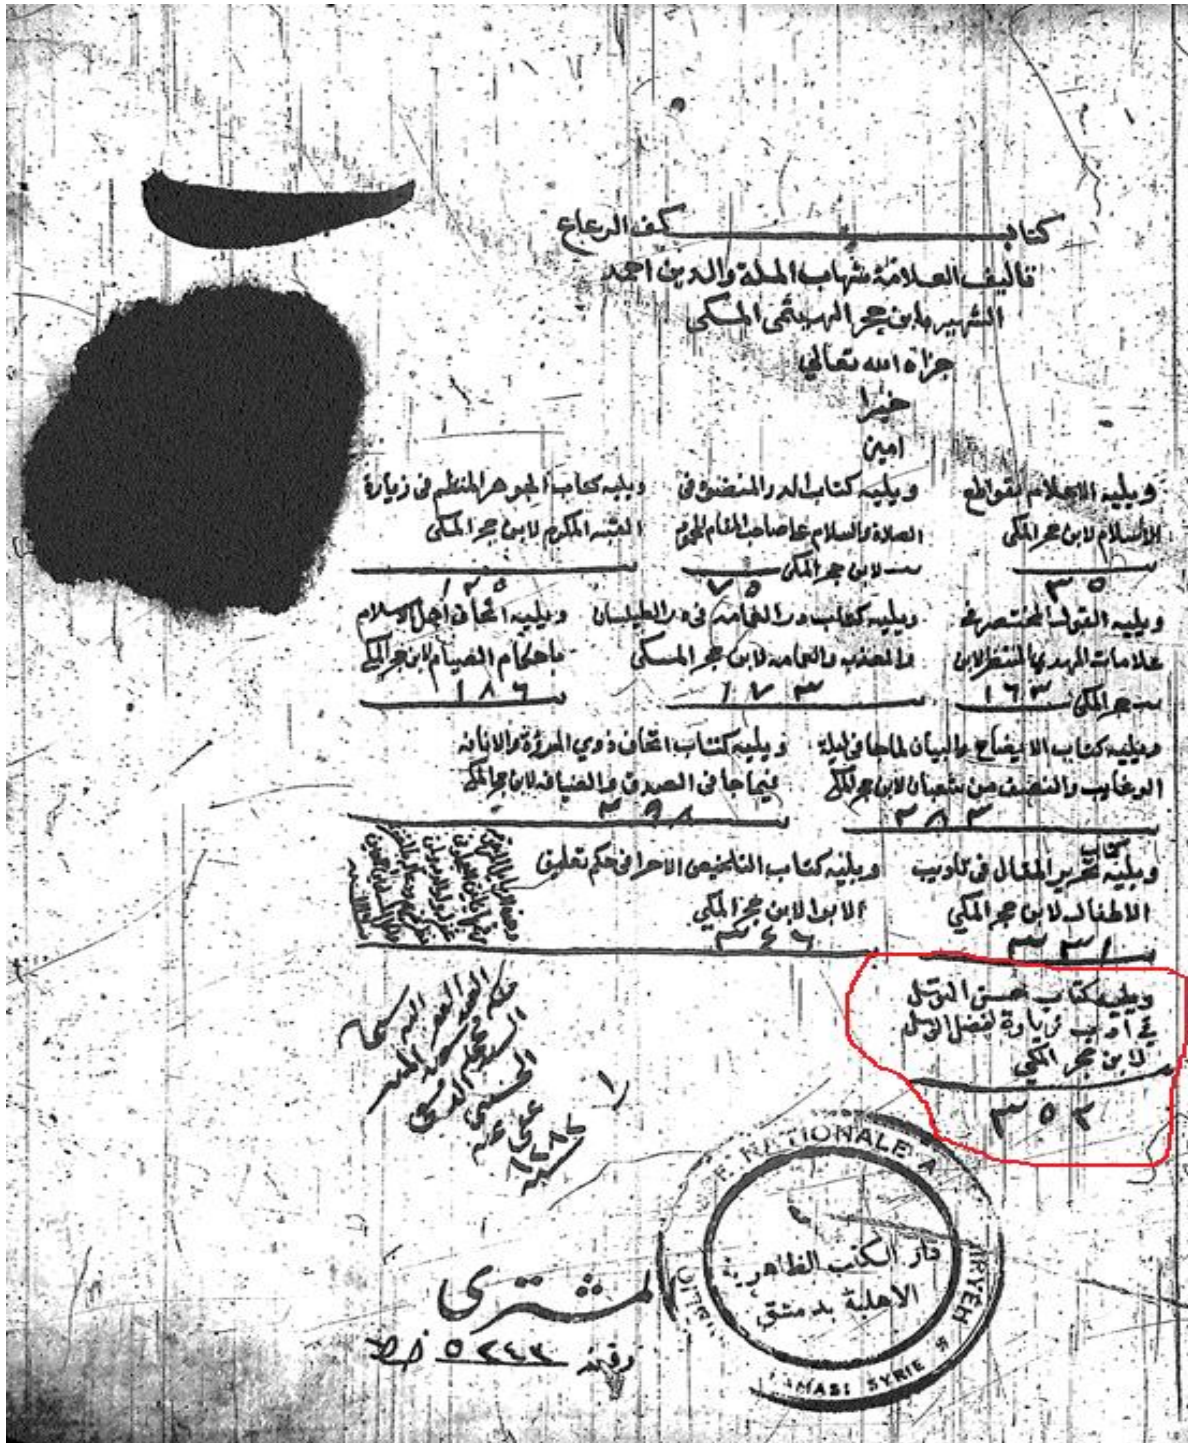 كتاب كف الرعاع
تاليف العلامة شهاب الملة والدين احمد
الشهير بابن حجر الهيثمى المكى
جزاه الله تعالى
خيرا
امين
ويليه الاعلام بقواطع
الاسلام لابن حجر المكى
٣٥
ويليه كتاب الدر المنضود فى
الصلاة والسلام على صاحب المقام المحمود
لابن حجر المكى
٧٥
ويليه كتاب الجوهر المنظم فى زيارة
القبر المكرم لابن حجر المكى
١٢٥
ويليه القول المختصر فى
علامات المهدي المنتظر لابن
حجر المكى ١٦٣
ويليه كتاب در الغمامه فى در الطيلسان
والعذبه والعمامه لابن حجر المكى
١٧٣
ويليه اتحاف اهل الاسلام
باحكام الصيام لابن حجر المكى
١٨٦
ويليه كتاب الايضاح والبيان لما جا فى ليلة
الرغايب والنصف من شعبان لابن حجر المكى
٢٨٣
ويليه كتاب اتحاف ذوي المروة والانافه
فيما جا فى الصدقه والضيافه لابن حجر المكى
٢٩٨
ويليه كتاب تحرير المقال فى تاديب
الاطفال لابن حجر المكي
٣٣١
ويليه كتاب التلخيص الاحرا فى حكم تعليق
الابرا لابن حجر المكي
٣٤٦
ويليه كتاب حسن التوسل
في ادب زيارة افضل الرسل
لابن حجر المكي
٣٥٢
السيد محمد
الحسنى
عفى عنه
سنة ١٢٨٢
NATIONALE
دار الكتب الظاهرية
الاهلية بدمشق
DAMAS SYRIE
المشترى
وقمه ٥٢٤٢ خط